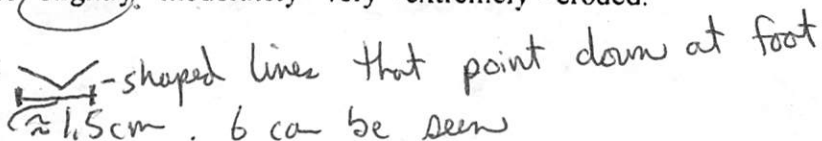 slightly, moderately very extremely eroded.
-shaped lines that point down at foot
≈ 1.5cm. 6 can be seen